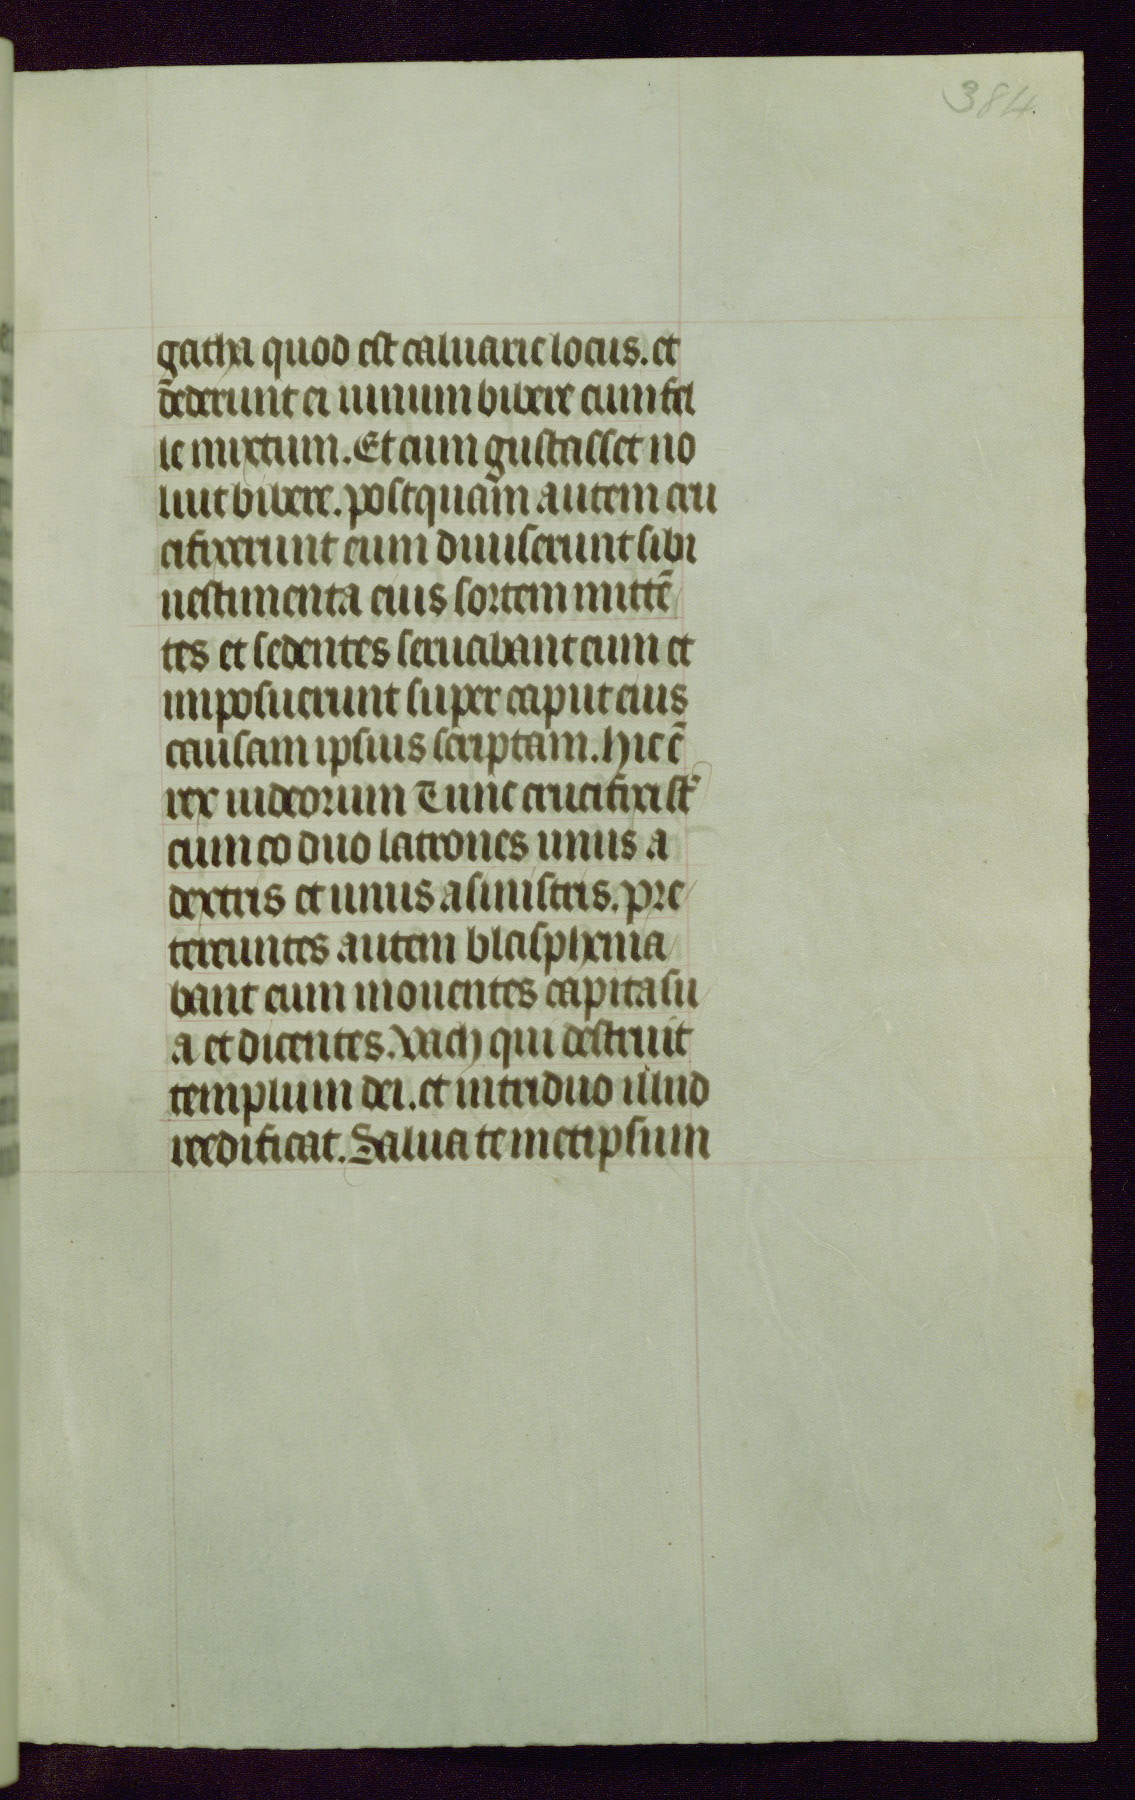 384.
gatha quod est caluarie locus. et
dederunt ei uinum bibere cum fel
le mixtum. Et cum gustasset no
luit bibere. postquam autem cru
cifixerunt eum diuiserunt sibi
uestimenta eius sortem mittē
tes et sedentes seruabant eum et
imposuerunt super caput eius
causam ipsius scriptam. hic ē
rex iudeorum Tunc crucifixi st̄
cum eo duo latrones unus a
dextris et unus a sinistris. pre
tereuntes autem blasphema
bant eum mouentes capita su
a et dicentes. Vach qui destruit
templum dei. et in triduo illud
reedificat. Salua temetipsum